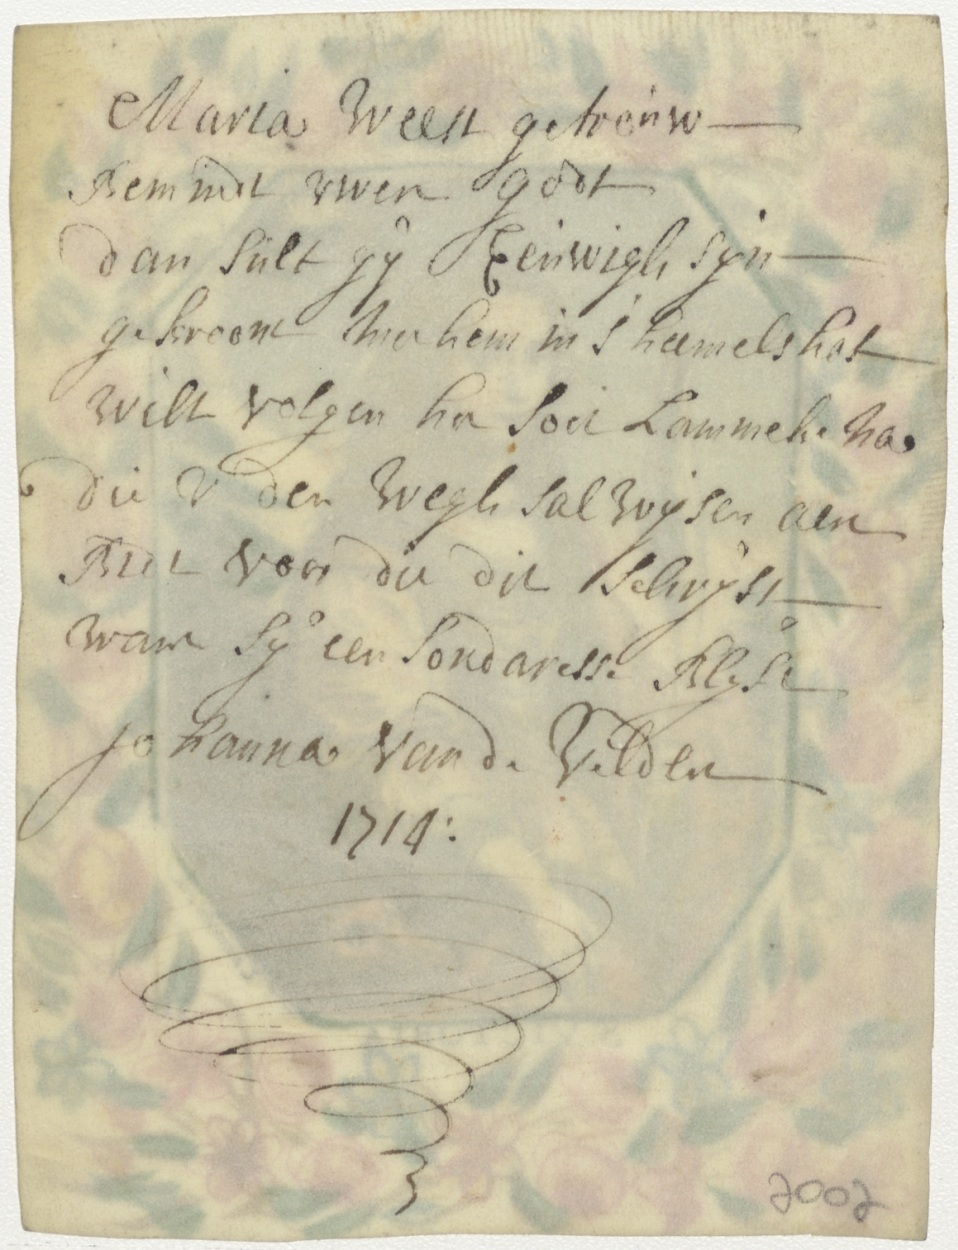 Maria weest getrouw
Bemindt uwen godt
dan sult gÿ Eeuwigh sÿn
gekroont met hem in s'heemels hof
wilt volgen het soet Lammeke na
die u den wegh sal wÿsen aen
Bidt voor die dit schrÿft
want sÿ een sondaresse blÿft
Johanna vande Velden
1714:
2002